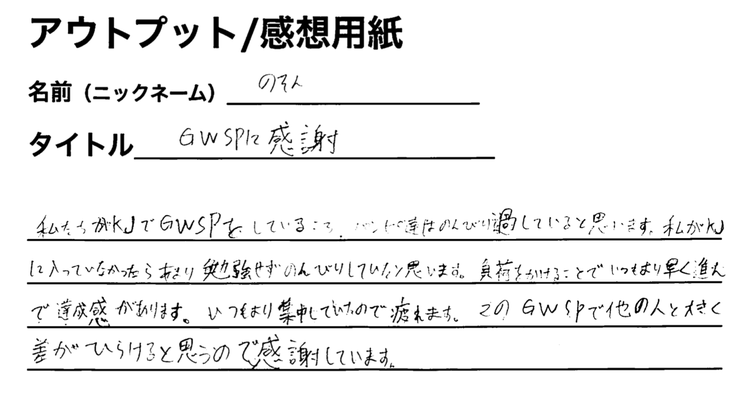 アウトプット/感想用紙
名前（ニックネーム） のぞん
タイトル GWSPに感謝
私たちがKJでGWSPをしているころ、達はのんびり過していると思います。私がKJ
に入っていなかったらあまり勉強せずのんびりしていたと思います。負荷をかけることでいつもより早く進ん
で達成感があります。いつもより集中していたので疲れます。このGWSPで他の人と大きく
差がひらけると思うので感謝しています。